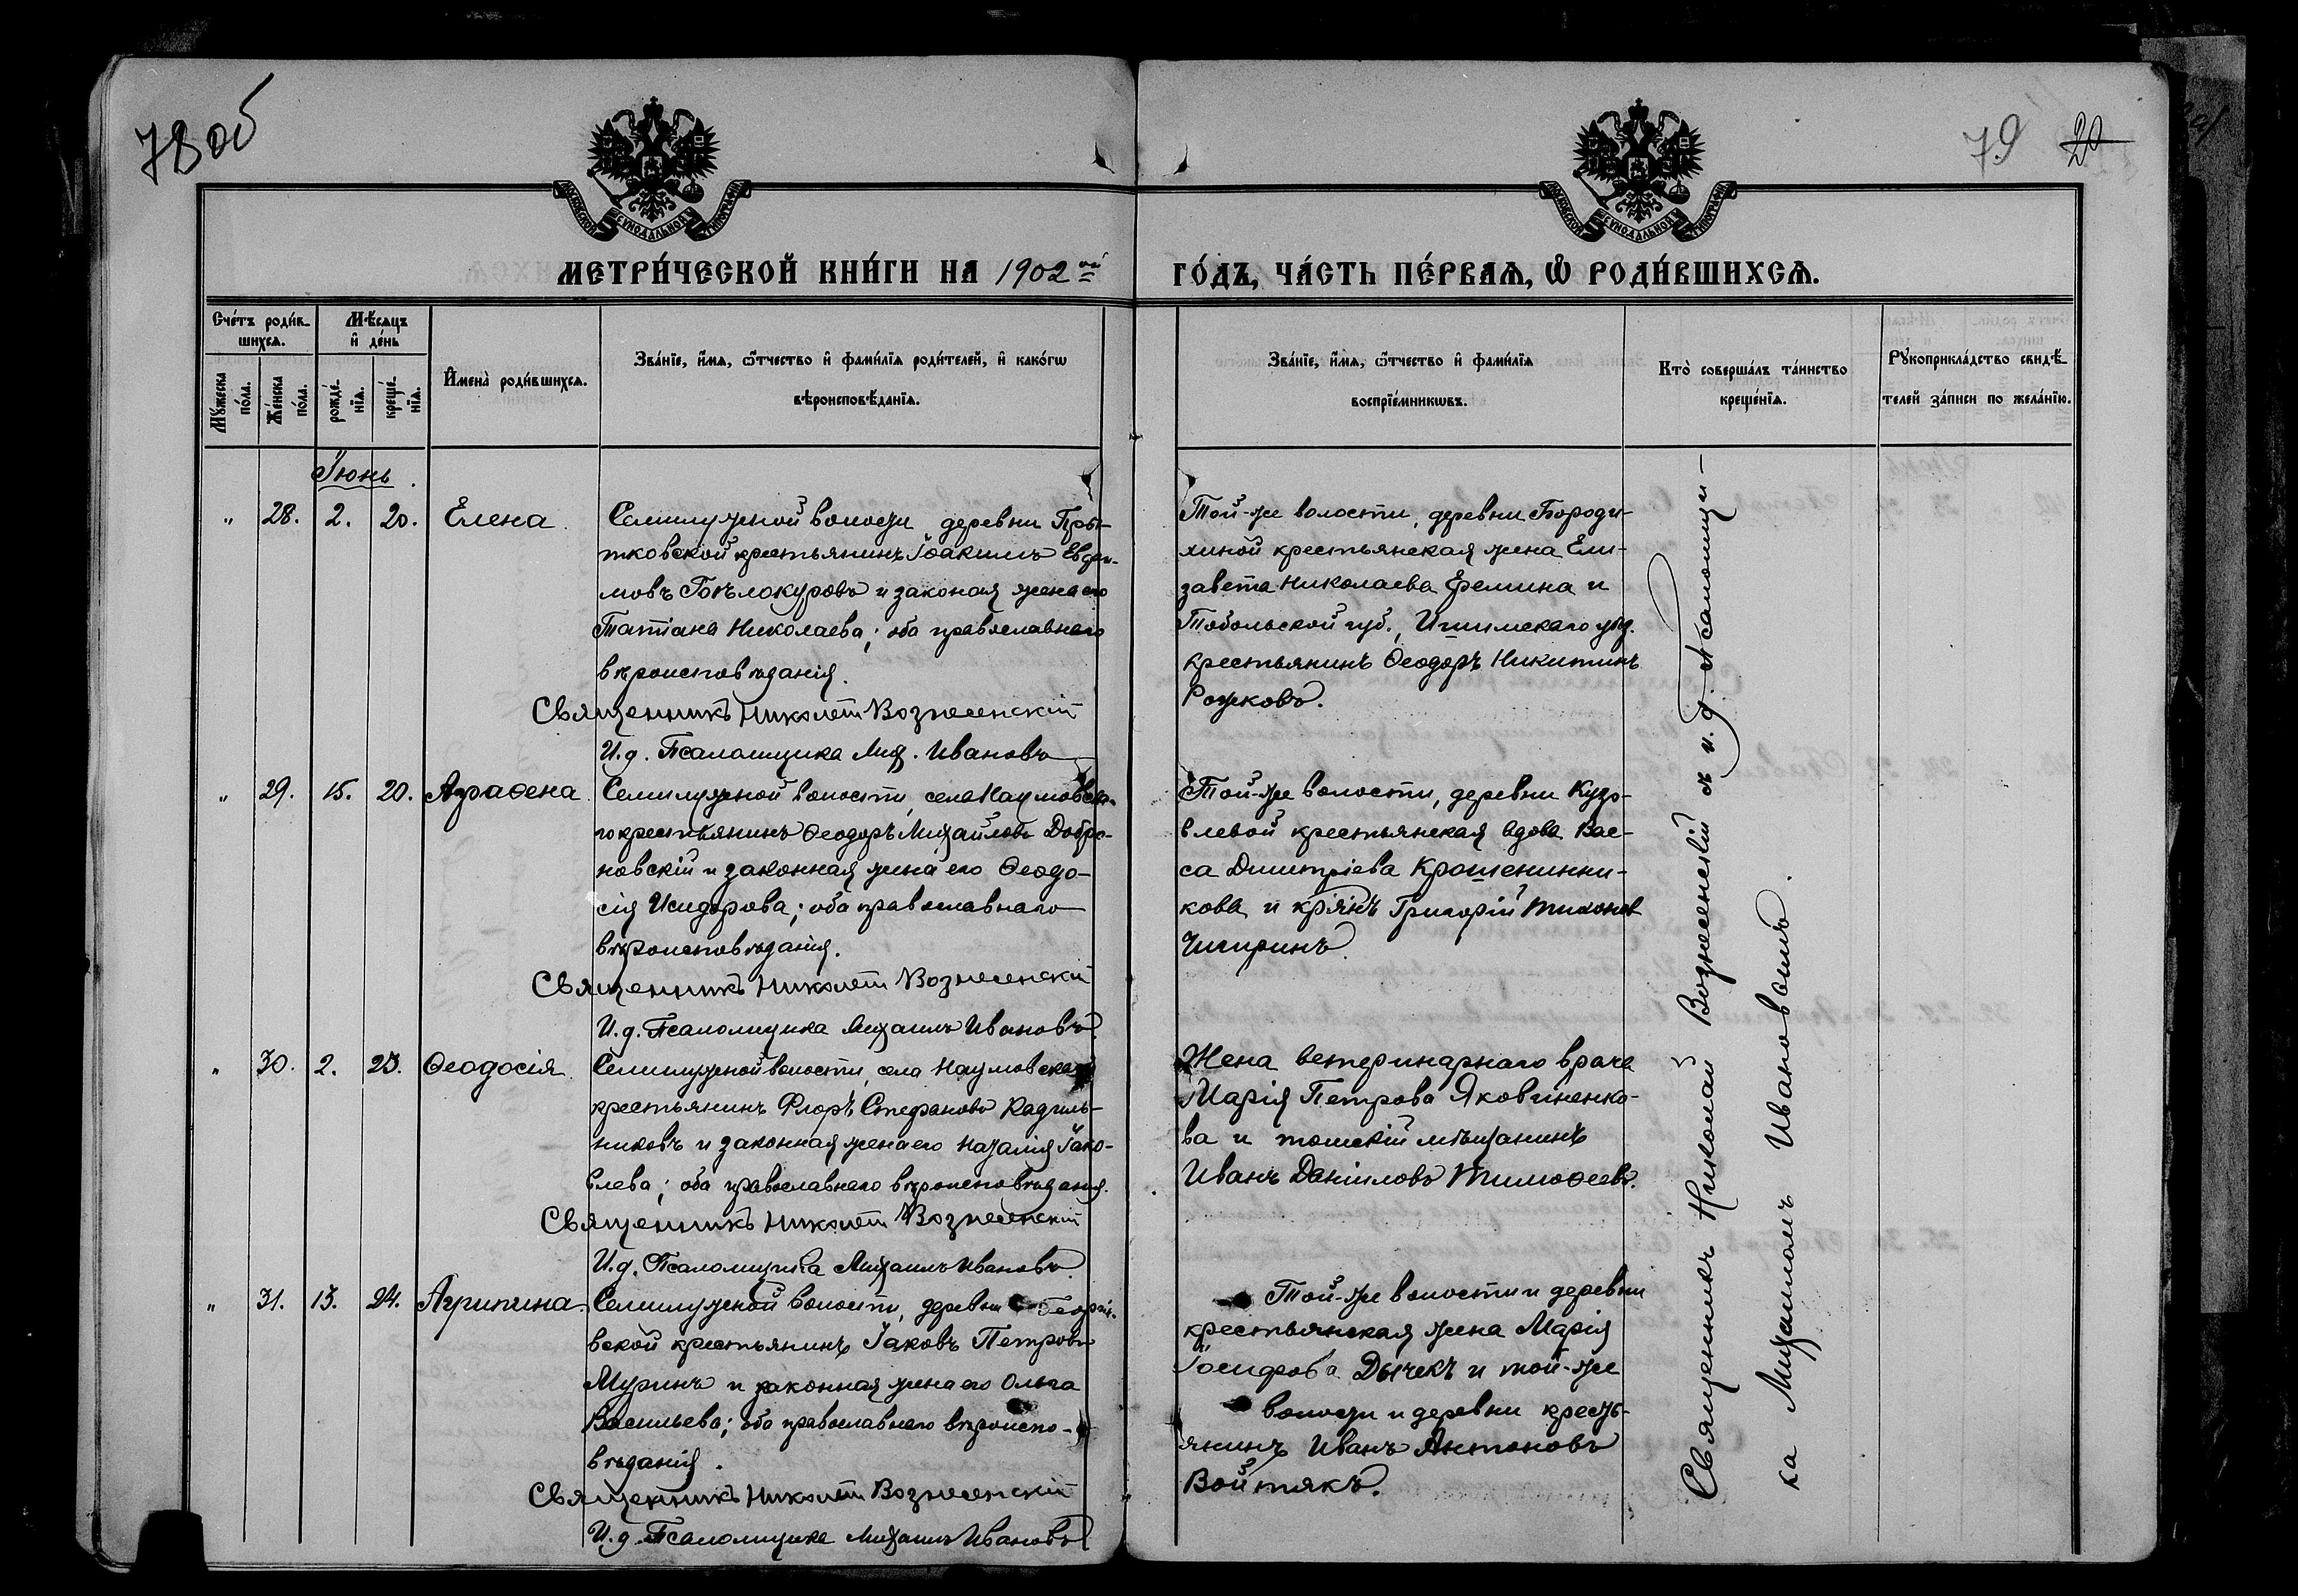 78 об
79 20
МОСКОВСКОЙ СѴНОДАЛЬНОЙ ТИПОГРАФІИ
МОСКОВСКОЙ СѴНОДАЛЬНОЙ ТИПОГРАФІИ
МЕТРИ́ЧЕСКОЙ КНИ́ГИ НА 1902 ой ГО́ДЪ, ЧА́СТЬ ПЕ́РВАѦ, Ѡ РОДИ́ВШИХСѦ.
Сче́тъ роди́в-
шихсѧ.
Мѣ́сѧцъ
и҆ де́нь
Мꙋ́жеска по́ла.
Же́нска по́ла.
рожде́-
нїѧ.
креще́-
нїѧ.
И҆мена̀ роди́вшихсѧ.
Зва́нїе, и҆́мѧ, ѻ҆́тчество и҆ фами́лїѧ роди́телей, и҆ како́гѡ
вѣроисповѣ́данїѧ.
Зва́нїе, и҆́мѧ, ѻ҆́тчество и҆ фами́лїѧ
воспрїе́мникѡвъ.
Кто̀ соверша́лъ та́инство
креще́нїѧ.
Рꙋкоприкла́дство свидѣ́-
телей за́писи по жела́нїю.
Іюнь.
" 28. 2. 20. Елена. Семилужной волости деревни Прыт-
ковской крестьянинъ Іоакимъ Евфи-
мовъ Бѣлокуровъ и законая жена его
Татіана Николаева; оба православнаго
вѣроисповѣданія.
Священникъ Николай Вознесенскій
И.д. Псаломщика Мих. Ивановъ
Той-же волости, деревни Бороди-
хиной крестьянская жена Ели-
завета Николаева Еремина и
Тобольской губ., Ишимскаго уѣз.
крестьянинъ Ѳеодоръ Никитинъ
Рожковъ.
" 29. 15. 20. Аграѳена. Семилужной волости, села Наумовска-
го крестьянинъ Ѳеодоръ Михайловъ Добро-
новскій и законная жена его Ѳеодо-
сія Исидорова; оба православнаго
вѣроисповѣданія.
Священникъ Николай Вознесенскій
И.д. Псаломщика Михаилъ Ивановъ
Той-же волости, деревни Кузо-
влевой крестьянская вдова Вас-
са Димитріева Крошенинни-
кова и крянъ Григорій Тихонов
Чигиринъ.
" 30. 2. 23. Ѳеодосія. Семилужной волости, села Наумовскаго
крестьянинъ Флоръ Стефановъ Кадиль-
никовъ и законная жена его Наталія Іако-
влева; оба православнаго вѣроисповѣданія.
Священникъ Николай Вознесенскій
И.д. Псаломщика Михаилъ Ивановъ.
Жена ветеринарнаго врача
Марія Петрова Яковчиненко-
ва и томскій мѣщанинъ
Иванъ Даніиловъ Тимоѳеевъ.
" 31. 15. 24. Агрипина. Семилужной волости, деревни Георгіе-
вской крестьянинъ Іаковъ Петровъ
Муринъ и законная жена его Ольга
Васильева; оба православнаго вѣроиспо-
вѣданія.
Священникъ Николай Вознесенскій
И.д. Псаломщика Михаилъ Ивановъ
Той-же волости и деревни
крестьянская жена Марія
Іосифова Дычекъ и той-же
волости и деревни кресть-
янинъ Иванъ Антоновъ
Войтякъ.
Священникъ Николай Вознесенскій съ и. д. Псаломщи-
ка Михаиломъ Ивановымъ.